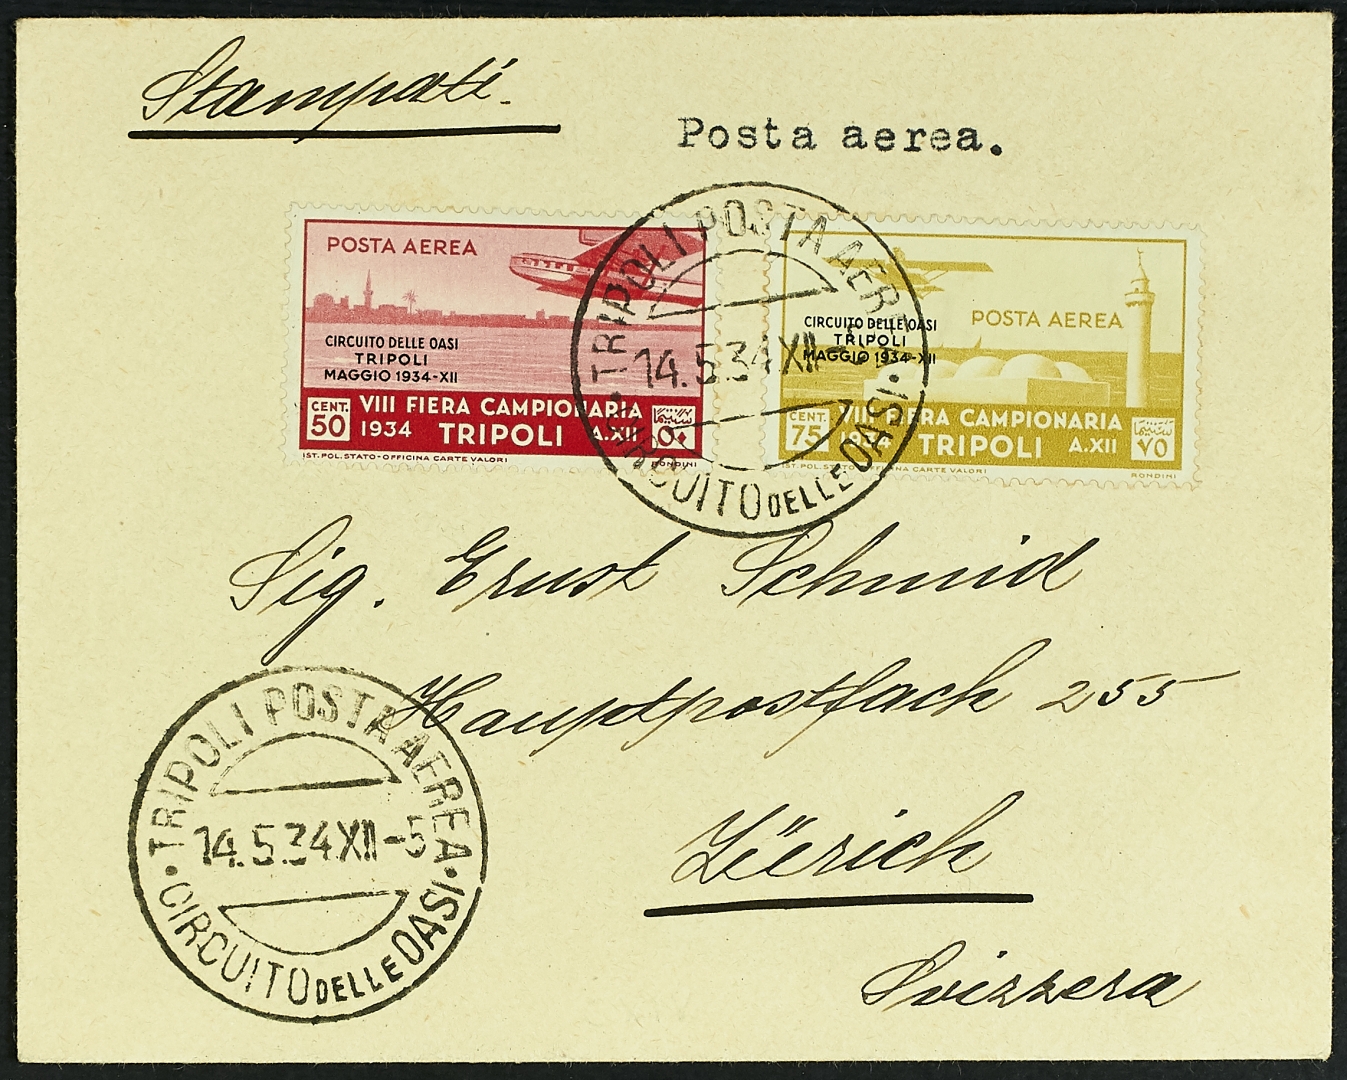 Stampati.
Posta aerea.
POSTA AEREA
CIRCUITO DELLE OASI
TRIPOLI
MAGGIO 1934-XII
CENT. 50
VIII FIERA CAMPIONARIA
1934 TRIPOLI A.XII
٥٠
IST. POL. STATO - OFFICINA CARTE VALORI
RONDINI
POSTA AEREA
CIRCUITO DELLE OASI
TRIPOLI
MAGGIO 1934-XII
CENT. 75
VIII FIERA CAMPIONARIA
1934 TRIPOLI A.XII
٧٥
IST. POL. STATO - OFFICINA CARTE VALORI
RONDINI
TRIPOLI POSTA AEREA
14.5.34 XII-5
CIRCUITO DELLE OASI
Sig. Ernst Schmid
Hauptpostfach 255
Zürich
Svizzera
TRIPOLI POSTA AEREA
14.5.34 XII-5
CIRCUITO DELLE OASI